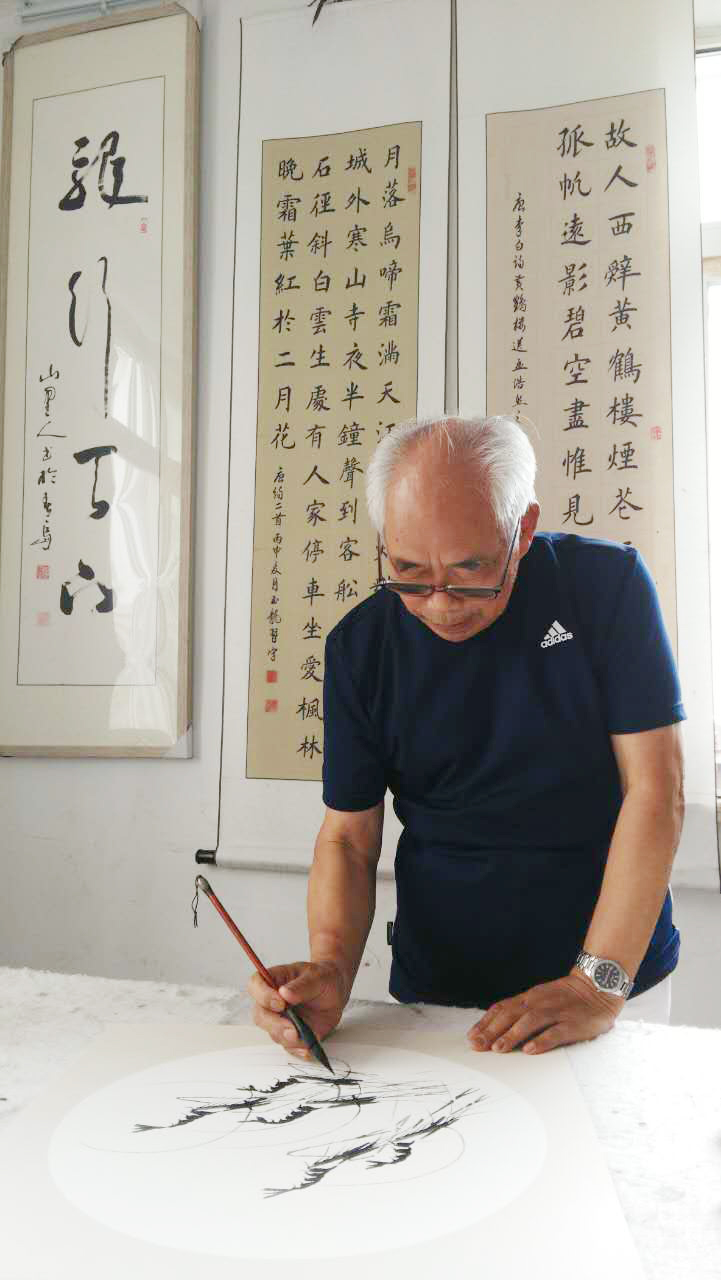 故人西辤黄鶴樓煙花
孤帆遠影碧空盡惟見
唐李白詩黄鶴樓送孟浩然
月落烏啼霜滿天江
城外寒山寺夜半鐘聲到客船
石徑斜白雲生處有人家停車坐愛楓林
晚霜葉紅於二月花
唐詩二首丙申夏月玉龍習字
行天
山里人书於青岛
adidas